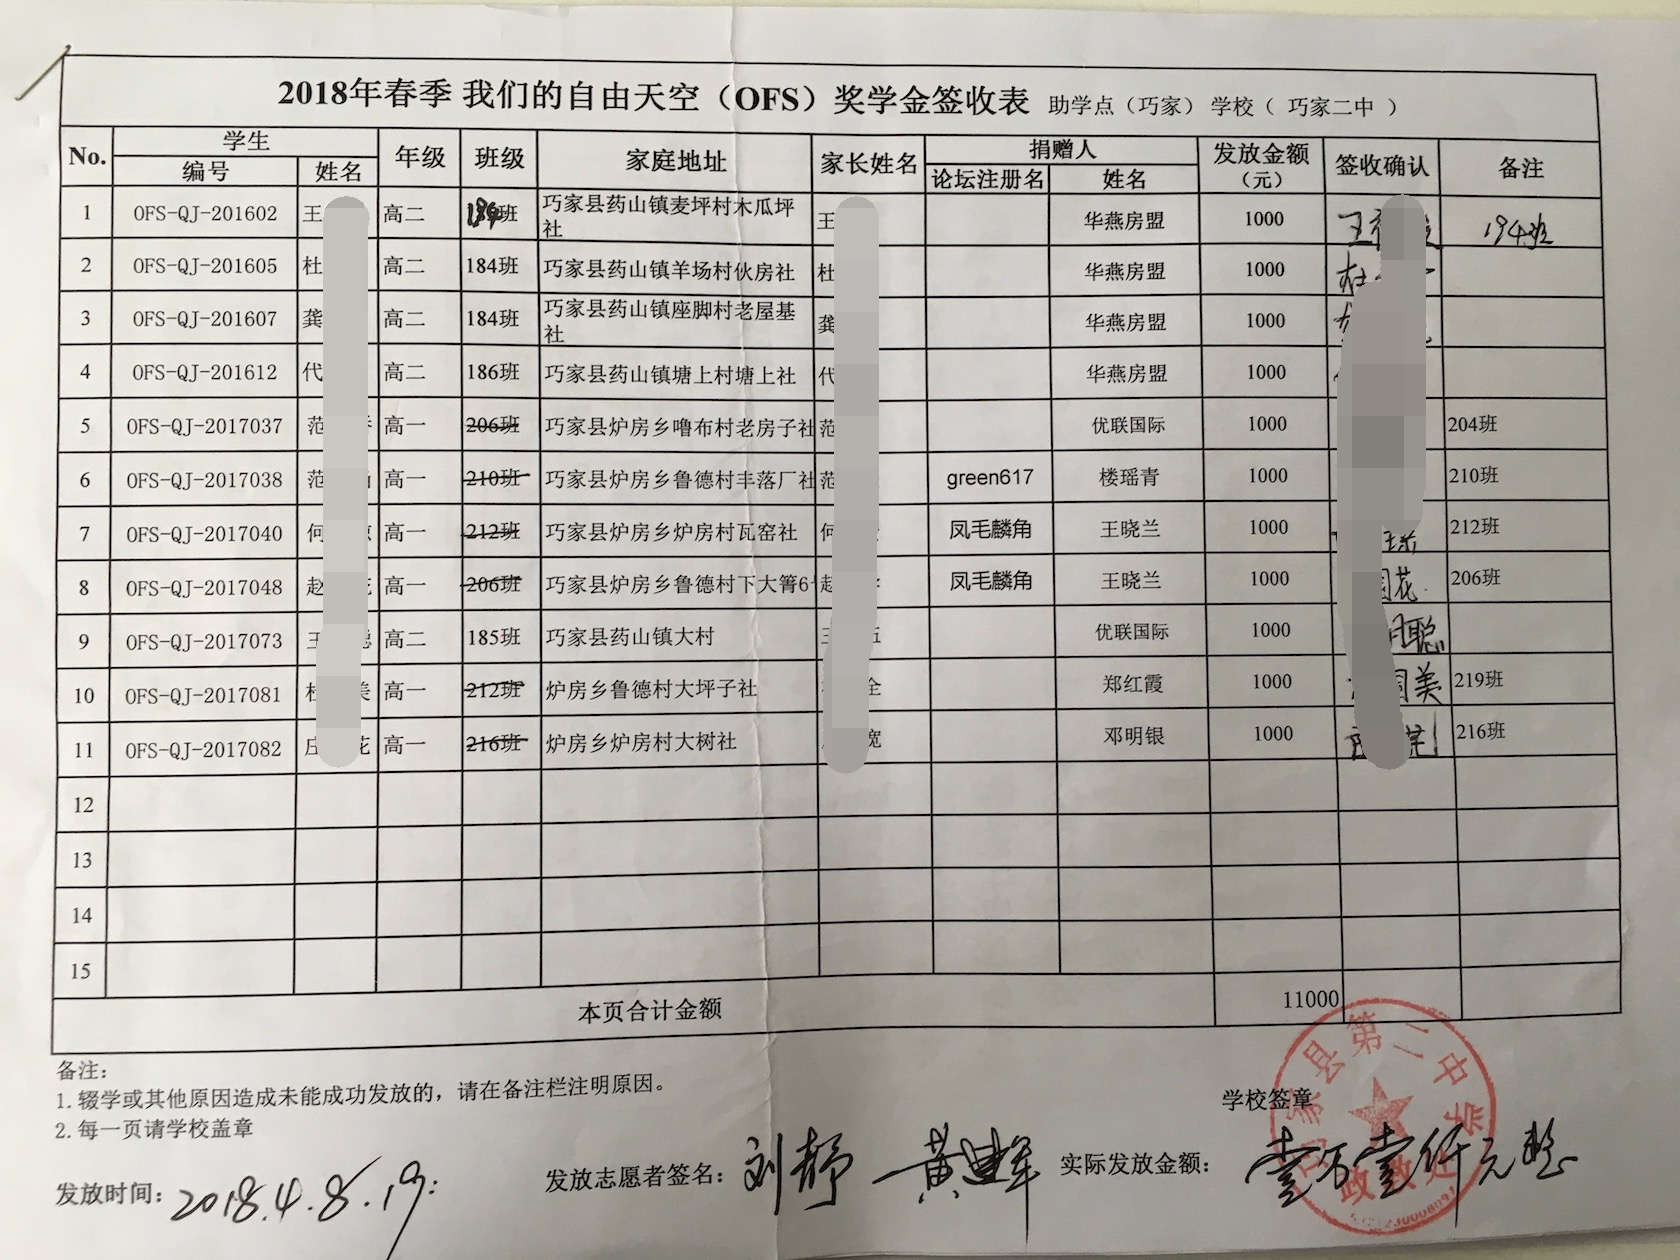 2018年春季 我们的自由天空（OFS）奖学金签收表 助学点（巧家） 学校（ 巧家二中 ）
No. 学生 年级 班级 家庭地址 家长姓名 捐赠人 发放金额（元） 签收确认 备注
编号 姓名 论坛注册名 姓名
1 OFS-QJ-201602 王 高二 194班 巧家县药山镇麦坪村木瓜坪社 王 华燕房盟 1000 王 194班
2 OFS-QJ-201605 杜 高二 184班 巧家县药山镇羊场村伙房社 杜 华燕房盟 1000 杜
3 OFS-QJ-201607 龚 高二 184班 巧家县药山镇座脚村老屋基社 龚 华燕房盟 1000
4 OFS-QJ-201612 代 高二 186班 巧家县药山镇塘上村塘上社 代 华燕房盟 1000
5 OFS-QJ-2017037 范 高一 206班 巧家县炉房乡噜布村老房子社 范 优联国际 1000 204班
6 OFS-QJ-2017038 范 高一 210班 巧家县炉房乡鲁德村丰落厂社 范 green617 楼瑶青 1000 210班
7 OFS-QJ-2017040 何 高一 212班 巧家县炉房乡炉房村瓦窑社 何 凤毛麟角 王晓兰 1000 212班
8 OFS-QJ-2017048 赵 花 高一 206班 巧家县炉房乡鲁德村下大箐6 赵 凤毛麟角 王晓兰 1000 花 206班
9 OFS-QJ-2017073 王 聪 高二 185班 巧家县药山镇大村 王 五 优联国际 1000 聪
10 OFS-QJ-2017081 杜 美 高一 212班 炉房乡鲁德村大坪子社 全 郑红霞 1000 美 219班
11 OFS-QJ-2017082 庄 花 高一 216班 炉房乡炉房村大树社 宽 邓明银 1000 216班
12
13
14
15
本页合计金额 11000
备注：
1.辍学或其他原因造成未能成功发放的，请在备注栏注明原因。
2.每一页请学校盖章
学校签章
巧家县第二中学
政教处
发放时间：2018.4.8.19:
发放志愿者签名：刘静
实际发放金额：壹万壹仟元整